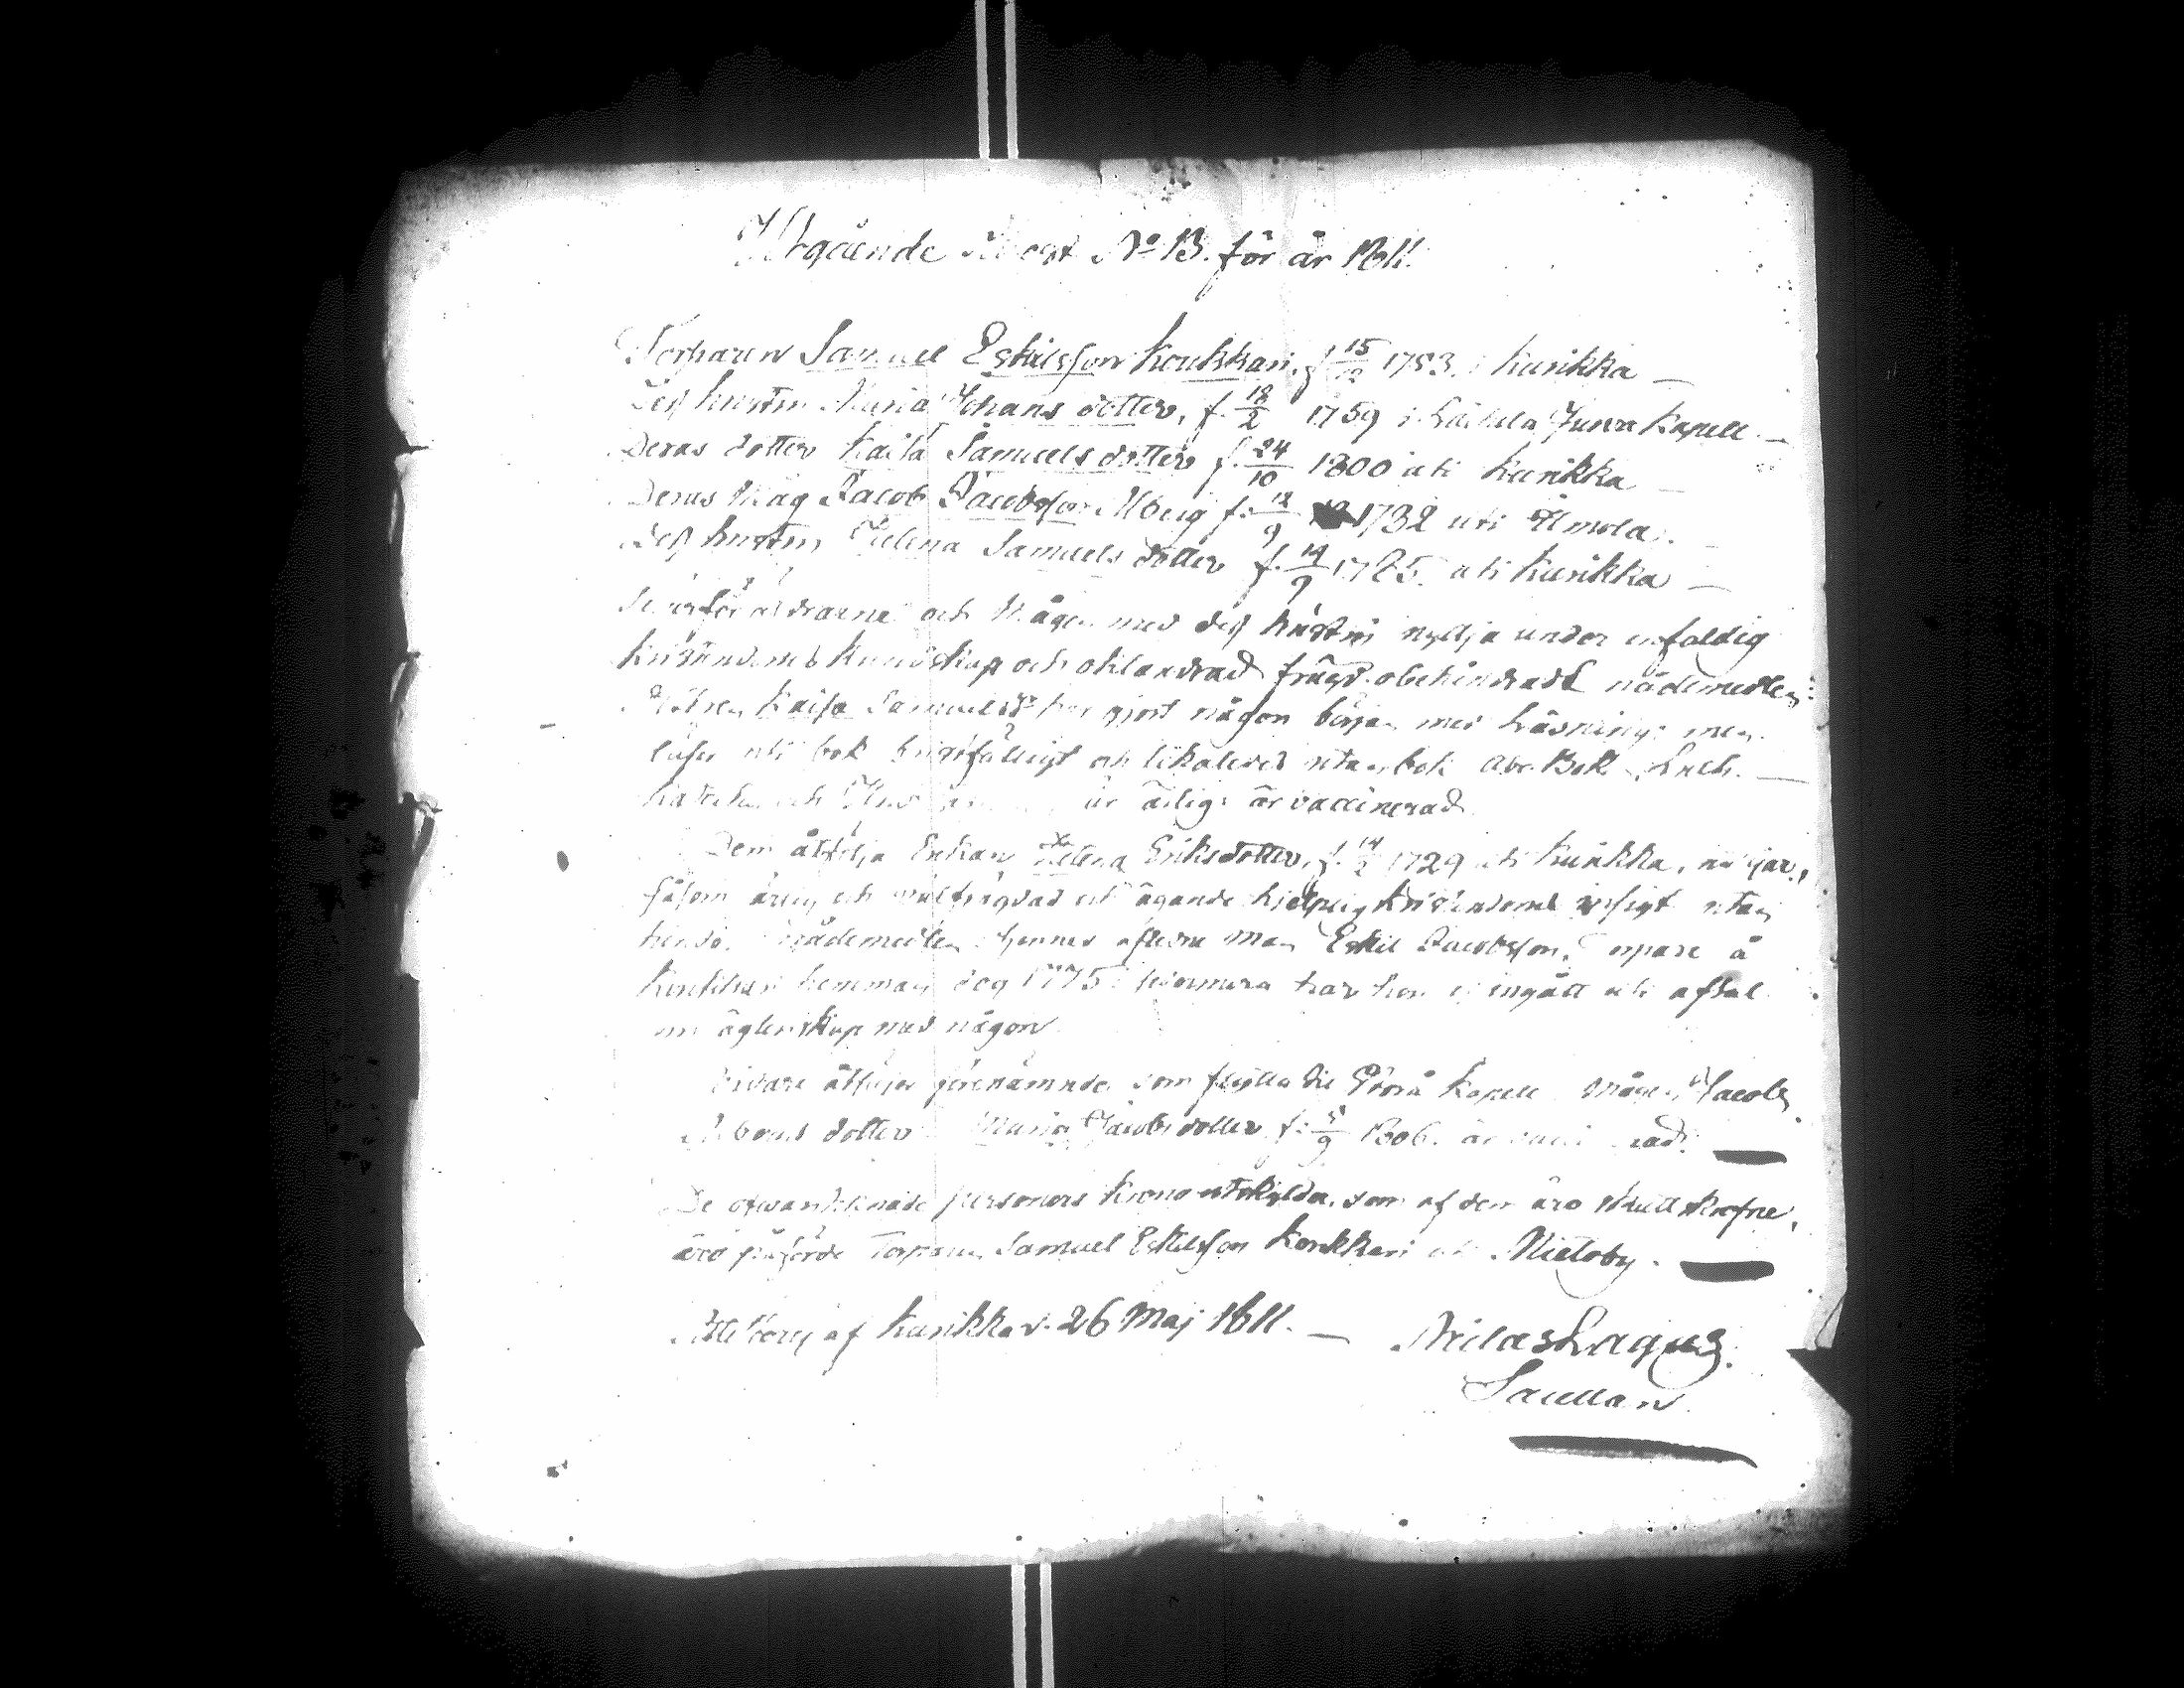 Utgående Attest No 13. för år 1811.
Torparen Samuel Eskilsson Koukkari. f. 15/12 1753. i Kurikka —
Dess hustru Maria Johans dotter, f. 18/2 1759 i Jurva Kapell. —
Deras dotter Kaisa Samuels dotter f. 24/10 1800 uti Kurikka —
Deras Måg Jacob Jacobsson Åberg f. 12/9 1782 uti Ilmola. —
Dess hustru Helena Samuels dotter f. 14/9 1785. uti Kurikka —
Svärföräldrarne och Mågen med dess hustru nyttja under enfaldig
Kristendoms kundskap och oklandrad frägd obehindradt nådemedlen:
Kaisa Samuelsdr har gjort någon början med Läsning: men
läser uti bok bristfälligt och likaledes utan bok Abc Bok, Luth.
Kateches och är ärlig: är vaccinerad.
Dem åtfölja Enkan Helena Eriksdotter, f. 1729 uti Kurikka, nyttjar,
såsom ärlig och välfrägdad och ägande hjelpelig Kristendoms insigt utan
hinder nådemedlen hennes afledne man Eskil Jacobsson, Torpare å
Koukkari hemman dog 1775: hvarmera har hon ej ingått uti aftal
om ägtenskap med någon
Vidare åtföljer förenämnda som flytta til Storå Kapell Mågen Jacob
Åbergs dotter Maria Jacobsdotter f. 5/9 1806. är vaccinerad. —
De ofvantecknade personers Krono utskylder, som af dem äro skattskrefne,
äro påförde Torparen Samuel Eskilsson Koukkari uti Mietoby. —
Attesterar af Kurikka d. 26 Maj 1811. — Niclas Lagus.
Sacellan